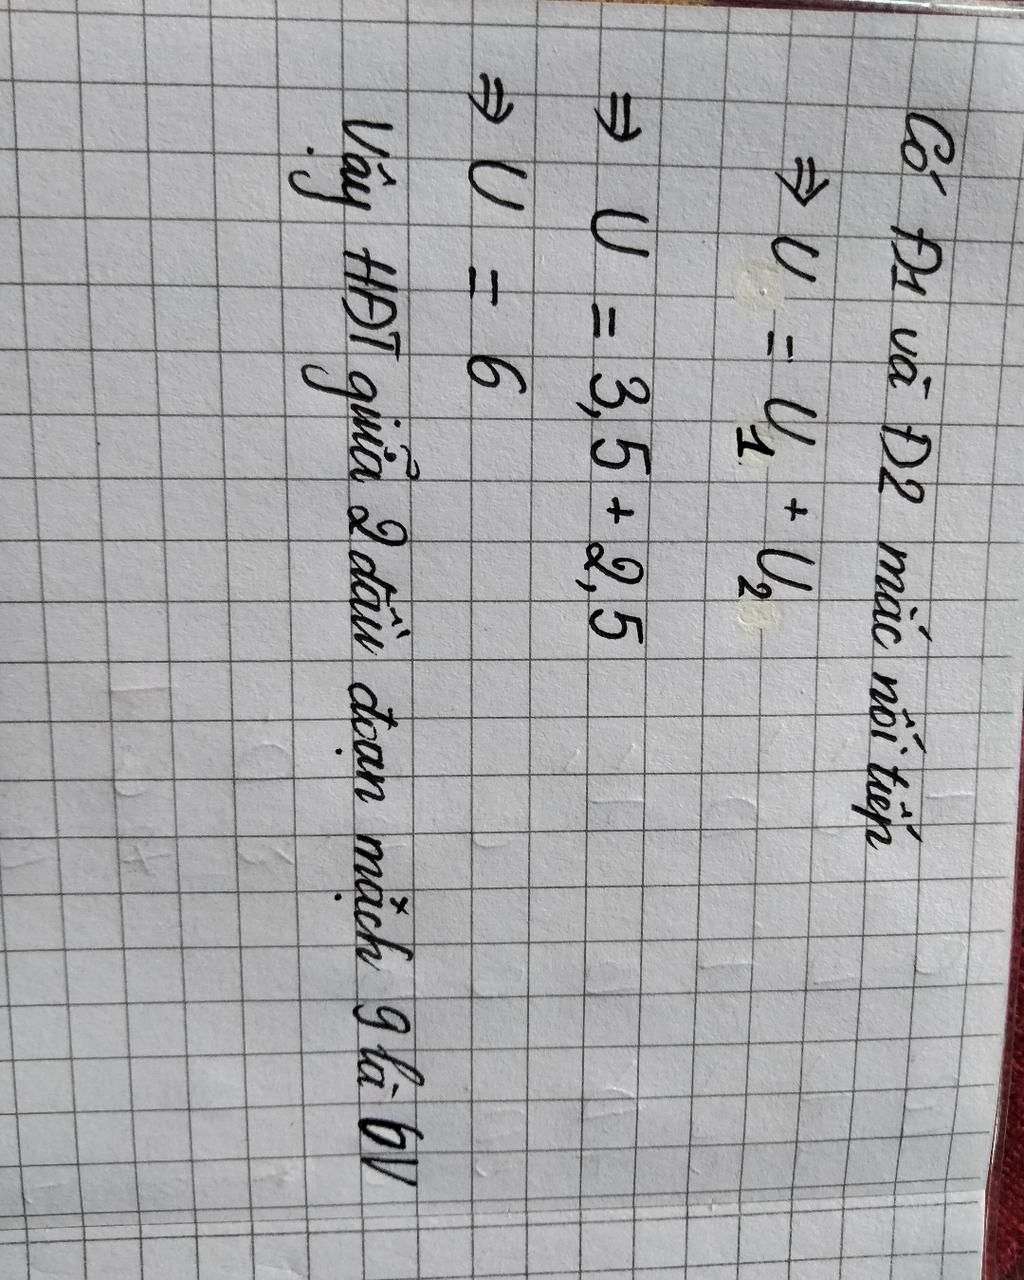 Có Đ1 và Đ2 mắc nối tiếp
⇒ U = U₁ + U₂
⇒ U = 3,5 + 2,5
⇒ U = 6
Vậy HĐT giữa 2 đầu đoạn mạch 9 là 6V